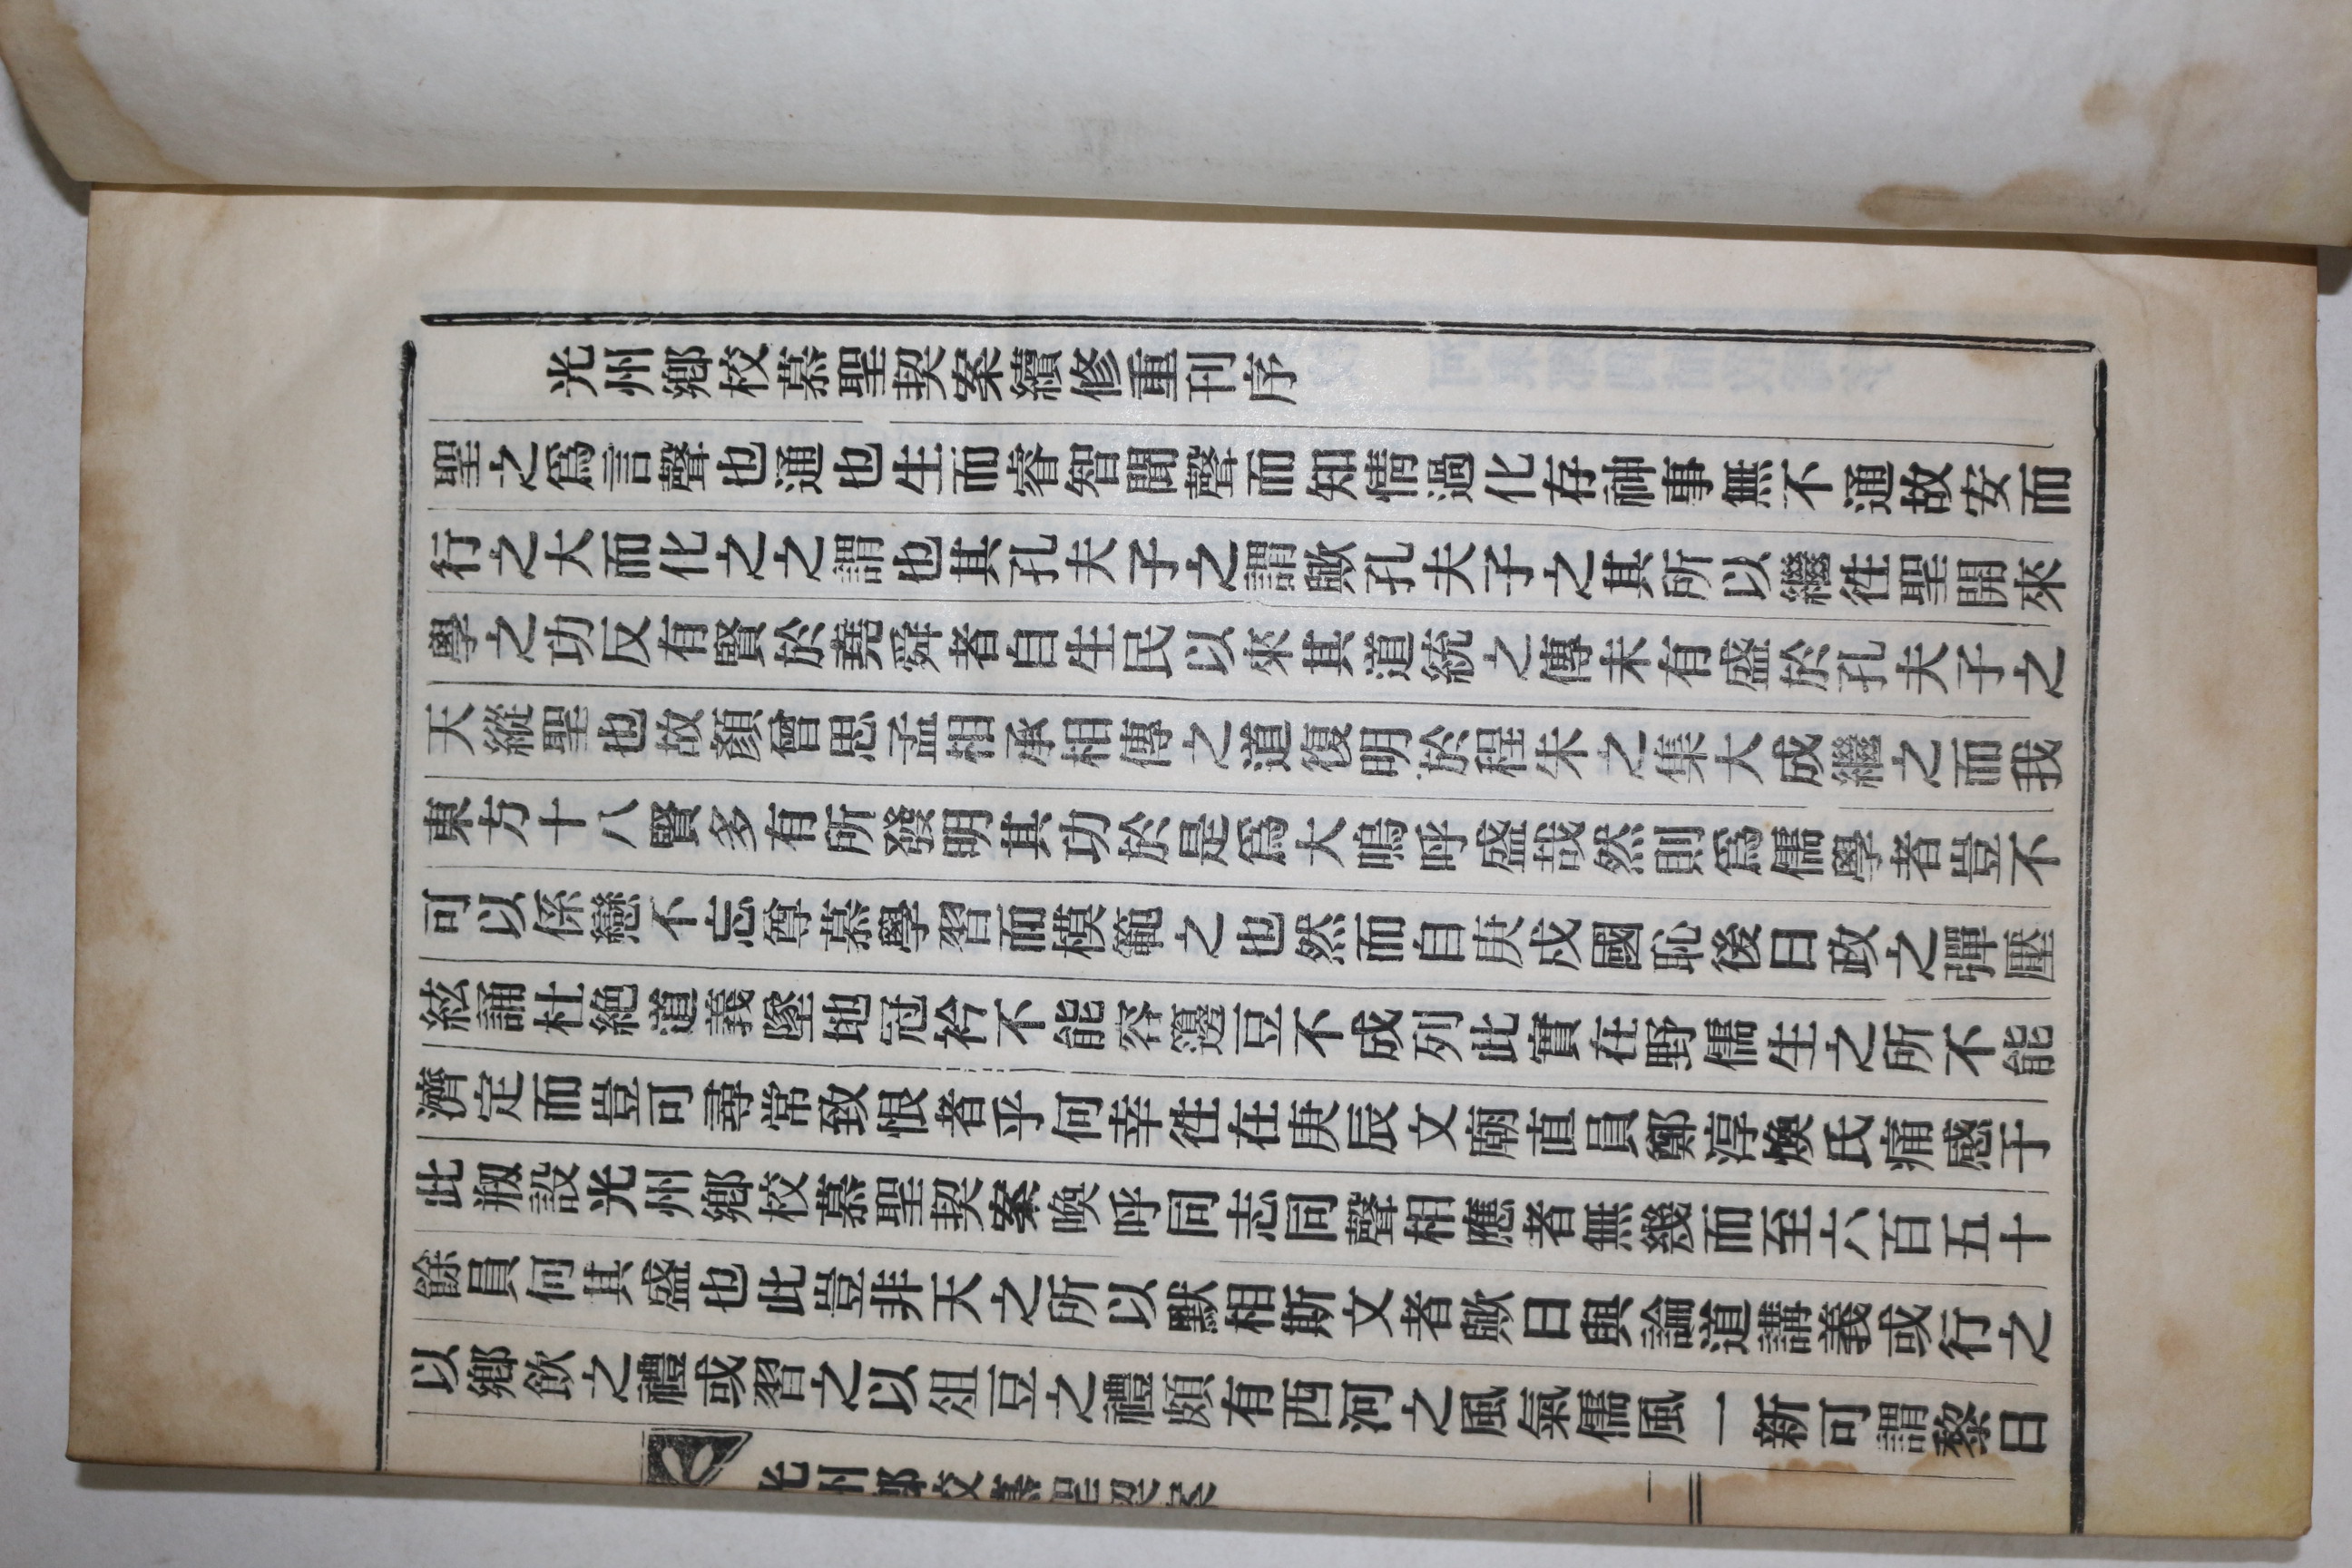 光州鄕校慕聖契案續修重刊序
聖之爲言聲也通也生而睿智聞聲而知情過化存神事無不通故安而
行之大而化之之謂也其孔夫子之謂歟孔夫子之其所以繼徃聖開來
學之功反有賢於堯舜者自生民以來其道統之傳未有盛於孔夫子之
天縱聖也故顏曾思孟相承相傳之道復明於程朱之集大成繼之而我
東方十八賢多有所發明其功於是爲大嗚呼盛哉然則爲儒學者豈不
可以係戀不忘尊慕學習而模範之也然而自庚戍國恥後日政之彈壓
絃誦杜絶道義墜地冠衿不能容籩豆不成列此實在野儒生之所不能
濟定而豈可尋常致恨者乎何幸徃在庚辰文廟直員鄭淳煥氏痛感于
此剏設光州鄕校慕聖契案喚呼同志同聲相應者無幾而至六百五十
餘員何其盛也此豈非天之所以默相斯文者歟日與論道講義或行之
以鄕飮之禮或習之以俎豆之禮頗有西河之風氣儒風一新可謂黎日
光州鄕校慕聖契案
一